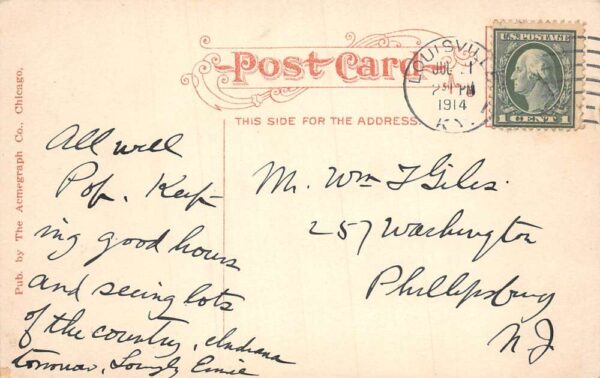 Post Card
THIS SIDE FOR THE ADDRESS
Pub. by The Acmegraph Co., Chicago.
LOUISVILLE
JUL 1
PM
1914
KY.
U.S. POSTAGE
1 CENT 1
All well
Pop. Keep-
ing good hours
and seeing lots
of the country, Indiana
tomorrow, Lovingly Ernie
M. Wm F Giles.
257 Washington
Phillipsburg
NJ